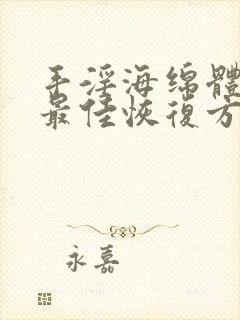 手淫海绵體
最佳恢復方
永嘉